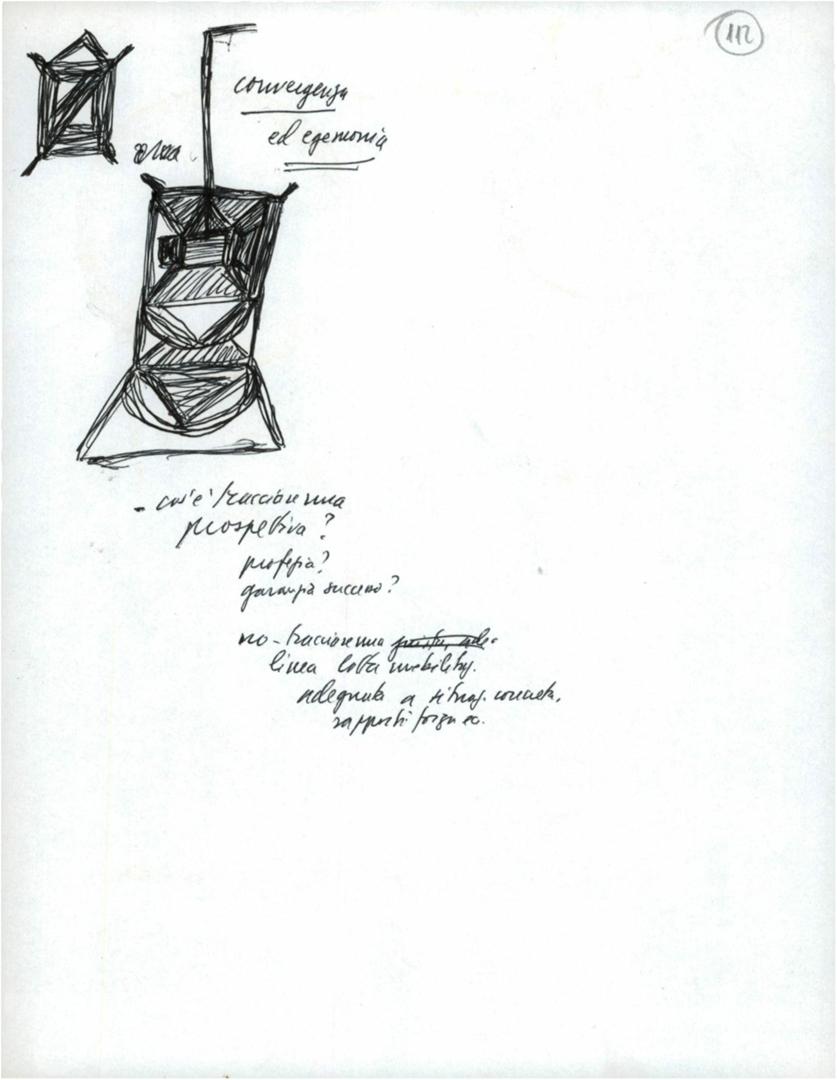 112
convergenza
ed egemonia
- cos'è tracciare una
prospettiva?
profezia?
garanzia successo?
no - tracciare una
linea lotta mobility.
adeguata a situaz. concreta,
rapporti forza ec.